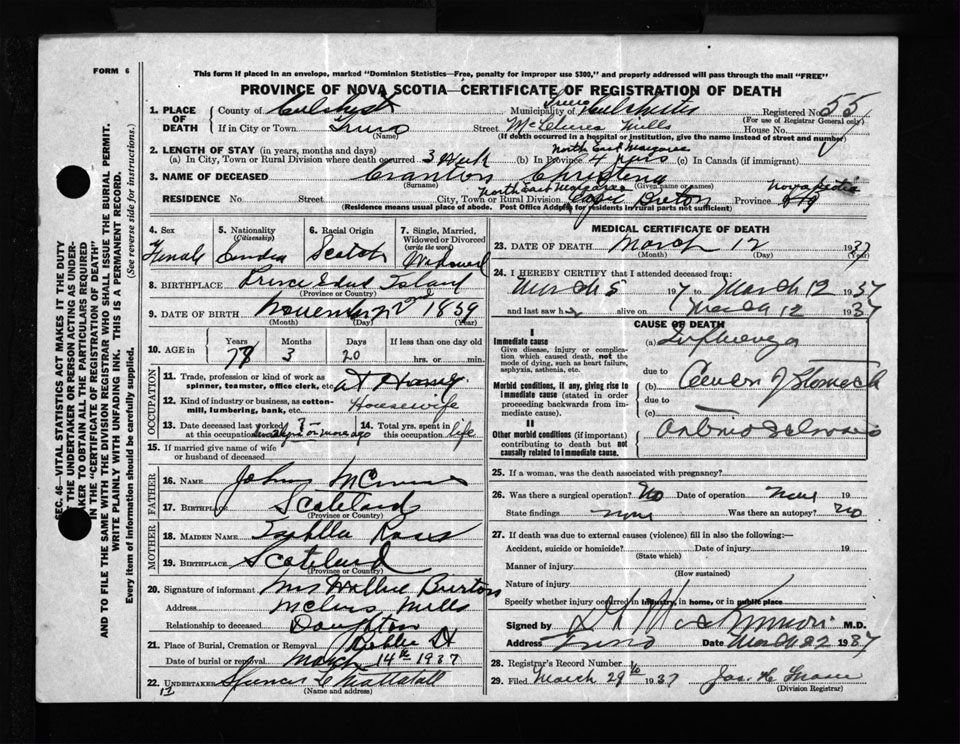 FORM 6
This form if placed in an envelope, marked "Dominion Statistics—Free, penalty for improper use $300," and properly addressed will pass through the mail "FREE"
PROVINCE OF NOVA SCOTIA—CERTIFICATE OF REGISTRATION OF DEATH
1. PLACE OF DEATH
County of Municipality of Truro Colchester Registered No. 55
(For use of Registrar General only)
If in City or Town Truro Street Mills House No.
(If death occurred in a hospital or institution, give the name instead of street and number)
2. LENGTH OF STAY (in years, months and days) North East Margaree
(a) In City, Town or Rural Division where death occurred 3 (b) In Province 4 yrs (c) In Canada (if immigrant)
3. NAME OF DECEASED Christena
(Surname) (Given name or names)
RESIDENCE No. Street North East Margaree City, Town or Rural Division Cape Breton Province Nova Scotia
(Residence means usual place of abode. Post Office Address for residents in rural parts not sufficient)
4. Sex Female
5. Nationality (Citizenship)
6. Racial Origin Scotch
7. Single, Married, Widowed or Divorced (write the word) Widowed
8. BIRTHPLACE Prince Edward Island
(Province or Country)
9. DATE OF BIRTH November 1859
(Month) (Day) (Year)
10. AGE in Years Months Days If less than one day
78 3 20 hrs. or min.
OCCUPATION
11. Trade, profession or kind of work as spinner, teamster, office clerk, etc. at Home
12. Kind of industry or business, as cotton-mill, lumbering, bank, etc. Housewife
13. Date deceased last worked at this occupation or more ago
14. Total yrs. spent in this occupation life
15. If married give name of wife or husband of deceased
FATHER
16. NAME John
17. BIRTHPLACE Scotland
(Province or Country)
MOTHER
18. MAIDEN NAME Ross
19. BIRTHPLACE Scotland
(Province or Country)
20. Signature of informant Mrs Burton
Address Mills
Relationship to deceased Daughter
21. Place of Burial, Cremation or Removal
Date of burial or removal March 14th 1937
22. UNDERTAKER
(Name and address)
17
MEDICAL CERTIFICATE OF DEATH
23. DATE OF DEATH March 12 1937
(Month) (Day) (Year)
24. I HEREBY CERTIFY that I attended deceased from:
March 5 to March 12 1937
and last saw h alive on March 12 1937
CAUSE OF DEATH
I
Immediate cause
Give disease, injury or complication which caused death, not the mode of dying, such as heart failure, asphyxia, asthenia, etc.
(a) Influenza
due to
Morbid conditions, if any, giving rise to immediate cause (stated in order proceeding backwards from immediate cause).
(b) of Stomach
due to
(c)
II
Other morbid conditions (if important) contributing to death but not causally related to immediate cause.
25. If a woman, was the death associated with pregnancy?
26. Was there a surgical operation? No Date of operation None 19
State findings none Was there an autopsy? no
27. If death was due to external causes (violence) fill in also the following:—
Accident, suicide or homicide? Date of injury 19
(State which)
Manner of injury
(How sustained)
Nature of injury
Specify whether injury occurred in industry, in home, or in public place
Signed by M.D.
Address Truro Date March 22 1937
28. Registrar's Record Number
29. Filed March 29th 1937 Jas.
(Division Registrar)
SEC. 46—VITAL STATISTICS ACT MAKES IT THE DUTY
OF THE UNDERTAKER OR PERSON ACTING AS UNDERTAKER TO OBTAIN ALL THE PARTICULARS REQUIRED
IN THE "CERTIFICATE OF REGISTRATION OF DEATH"
AND TO FILE THE SAME WITH THE DIVISION REGISTRAR WHO SHALL ISSUE THE BURIAL PERMIT.
WRITE PLAINLY WITH UNFADING INK. THIS IS A PERMANENT RECORD.
Every item of information should be carefully supplied. (See reverse side for instructions.)